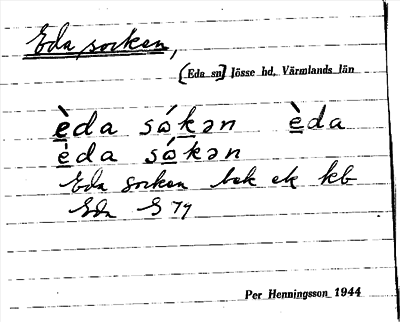 Eda socken,
[Eda sn] Jösse hd, Värmlands län
èda sókən èda
èda sókən
Eda socken bek ek kb
Eda S 77
Per Henningsson 1944